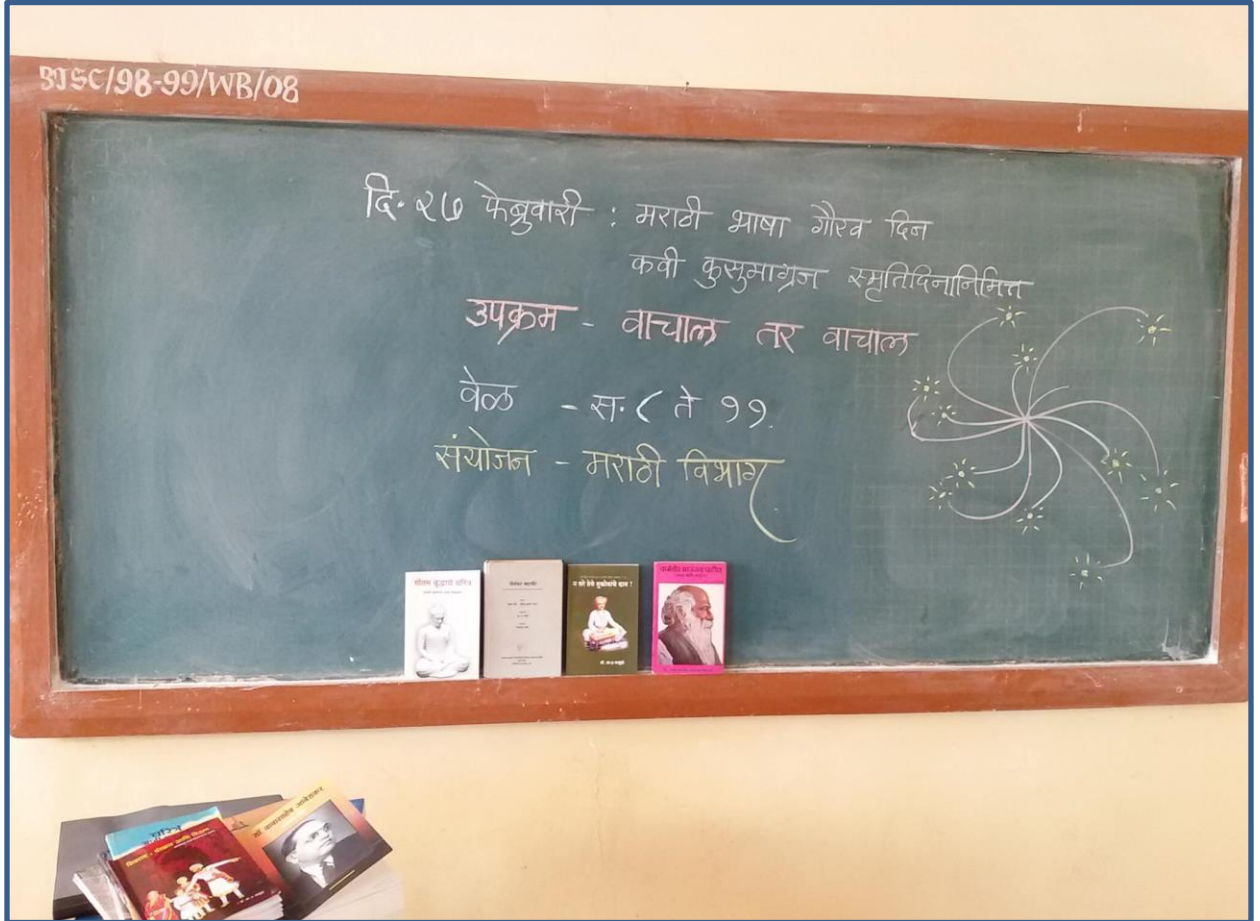 BJSC/98-99/WB/08
दि. २७ फेब्रुवारी : मराठी भाषा गौरव दिन
कवी कुसुमाग्रज स्मृतिदिनानिमित्त
उपक्रम - वाचाल तर वाचाल
वेळ - स. ८ ते ११.
संयोजन - मराठी विभाग
गौतम बुद्धाचे चरित्र
या करे देवे मुक्तीचे दान
कर्मवीर भाऊराव पाटील
चरित्र
डॉ. बाबासाहेब आंबेडकर